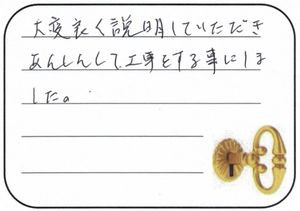 大変良く説明していただき
あんしんして、工事とする事にしま
した。